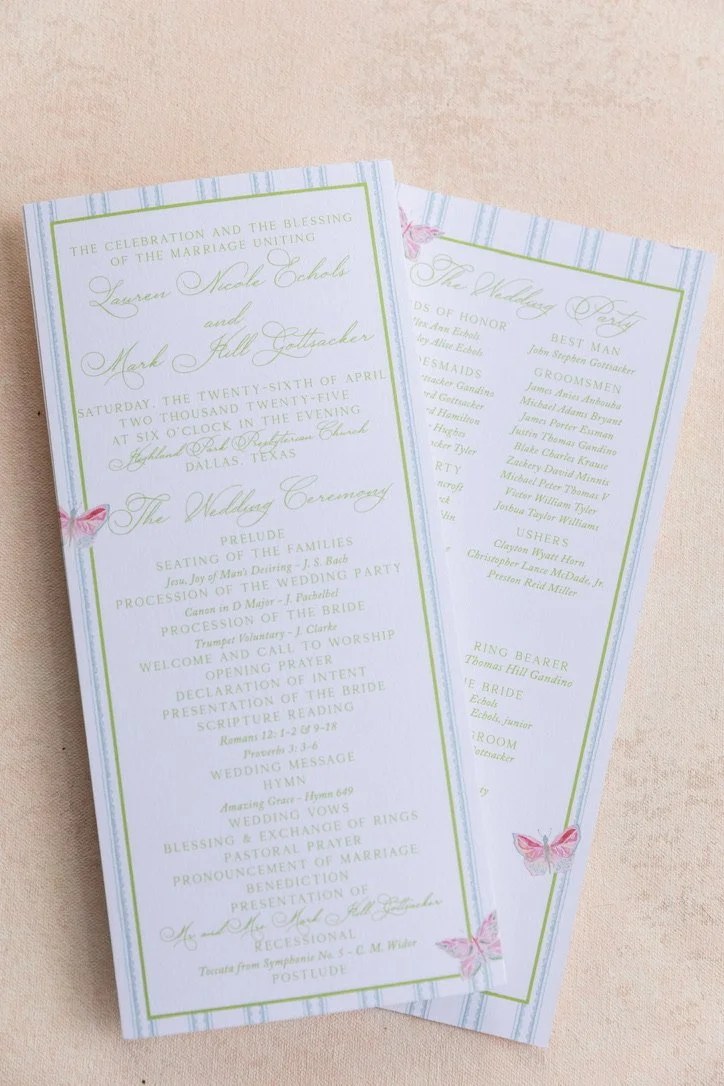 THE CELEBRATION AND THE BLESSING
OF THE MARRIAGE UNITING
Lauren Nicole Echols
and
Mark Hill Gottsacker
SATURDAY, THE TWENTY-SIXTH OF APRIL
TWO THOUSAND TWENTY-FIVE
AT SIX O'CLOCK IN THE EVENING
Highland Park Presbyterian Church
DALLAS, TEXAS
The Wedding Ceremony
PRELUDE
SEATING OF THE FAMILIES
Jesu, Joy of Man's Desiring - J. S. Bach
PROCESSION OF THE WEDDING PARTY
Canon in D Major - J. Pachelbel
PROCESSION OF THE BRIDE
Trumpet Voluntary - J. Clarke
WELCOME AND CALL TO WORSHIP
OPENING PRAYER
DECLARATION OF INTENT
PRESENTATION OF THE BRIDE
SCRIPTURE READING
Romans 12: 1-2 & 9-18
Proverbs 3: 3-6
WEDDING MESSAGE
HYMN
Amazing Grace - Hymn 649
WEDDING VOWS
BLESSING & EXCHANGE OF RINGS
PASTORAL PRAYER
PRONOUNCEMENT OF MARRIAGE
BENEDICTION
PRESENTATION OF
Mr. and Mrs. Mark Hill Gottsacker
RECESSIONAL
Toccata from Symphonie No. 5 - C. M. Widor
POSTLUDE
The Wedding Party
DS OF HONOR
Ann Echols
Alise Echols
ESMAIDS
Gandino
Gottsacker
Hamilton
Hughes
Tyler
RTY
BEST MAN
John Stephen Gottsacker
GROOMSMEN
James Anies Ankouba
Michael Adams Bryant
James Porter Essman
Justin Thomas Gandino
Blake Charles Krause
Zackery David Minnis
Michael Peter Thomas V
Victor William Tyler
Joshua Taylor Williams
USHERS
Clayton Wyatt Horn
Christopher Lance McDade, Jr.
Preston Reid Miller
RING BEARER
Thomas Hill Gandino
E BRIDE
Echols
Echols, junior
GROOM
Gottsacker